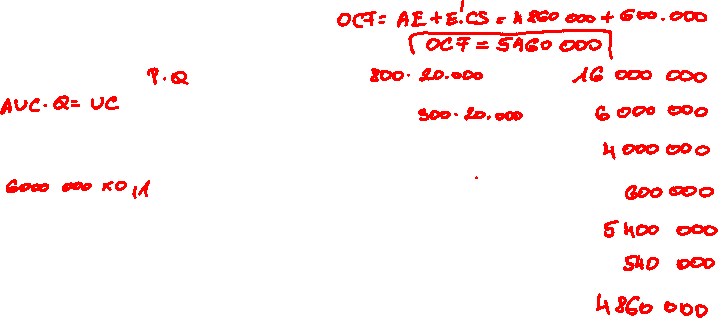 OCF = AE + E.CS = 4860 000 + 600.000
OCF = 5460 000
P.Q 800.20.000 16 000 000
AUC.Q = UC 300.20.000 6 000 000
4 000 000
6000 000 x0,1 600 000
5 400 000
540 000
4 860 000